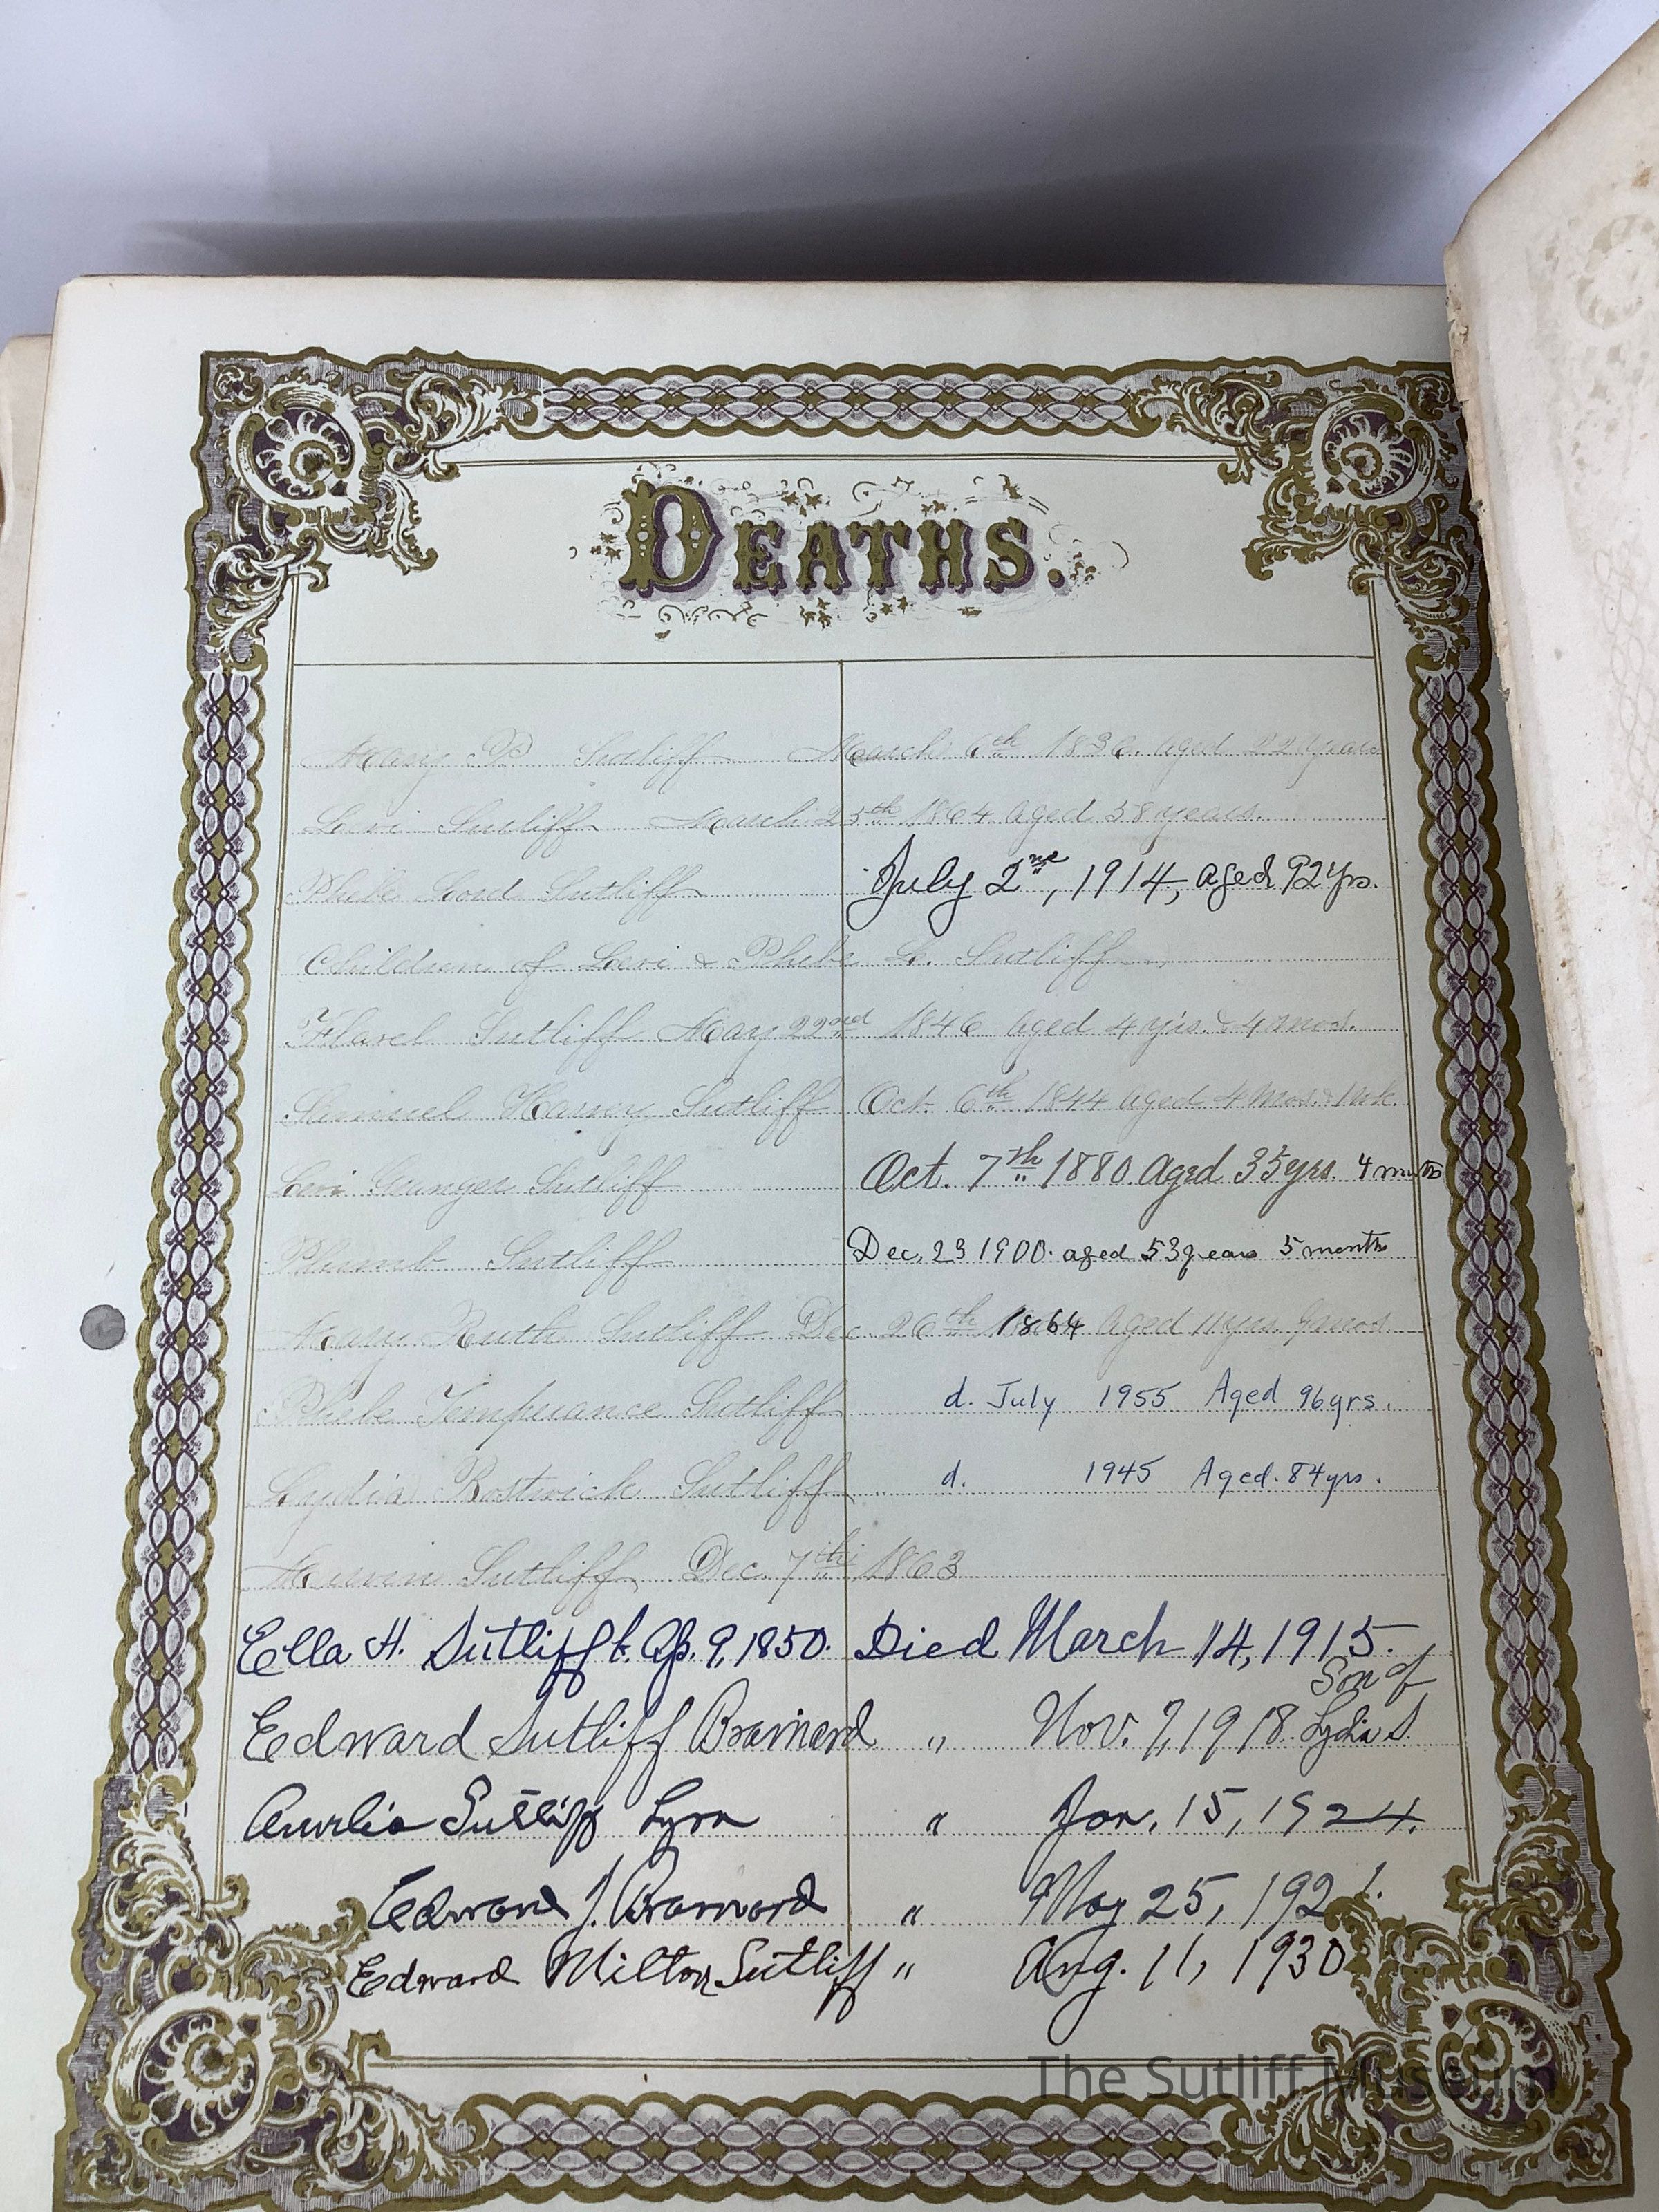 DEATHS.
Mary P. Sutliff March 6th 1836. aged 22 years
Levi Sutliff March 25th 1864 aged 58 years.
Phebe Lord Sutliff July 2nd, 1914, aged 92 yrs.
Children of Levi & Phebe L. Sutliff
Flavel Sutliff May 22nd 1846 aged 4 yrs. & 4 mos.
Samuel Harvey Sutliff Oct. 6th 1844 aged 4 mos. & 1 wk.
Levi Sutliff Oct. 7th 1880 aged 35 yrs. 4 months
Plumb Sutliff Dec. 23 1900. aged 53 years 5 months
Mary Ruth Sutliff Dec 26th 1864 aged 11 yrs. 9 mos.
Phebe Temperance Sutliff d. July 1955 Aged 96 yrs.
Lydia Bostwick Sutliff d. 1945 Aged. 84 yrs.
Sutliff Dec. 7th 1863
Ella H. Sutliff b. Ap. 9, 1850. Died March 14, 1915.
Son of
Edward Sutliff Brainard " Nov. 7, 1918. Lydia S.
Aurelia Sutliff Lynn " Jan. 15, 1924.
Edward J. Brainard " May 25, 192
Edward Milton Sutliff " Aug. 11, 1930
The Sutliff Museum